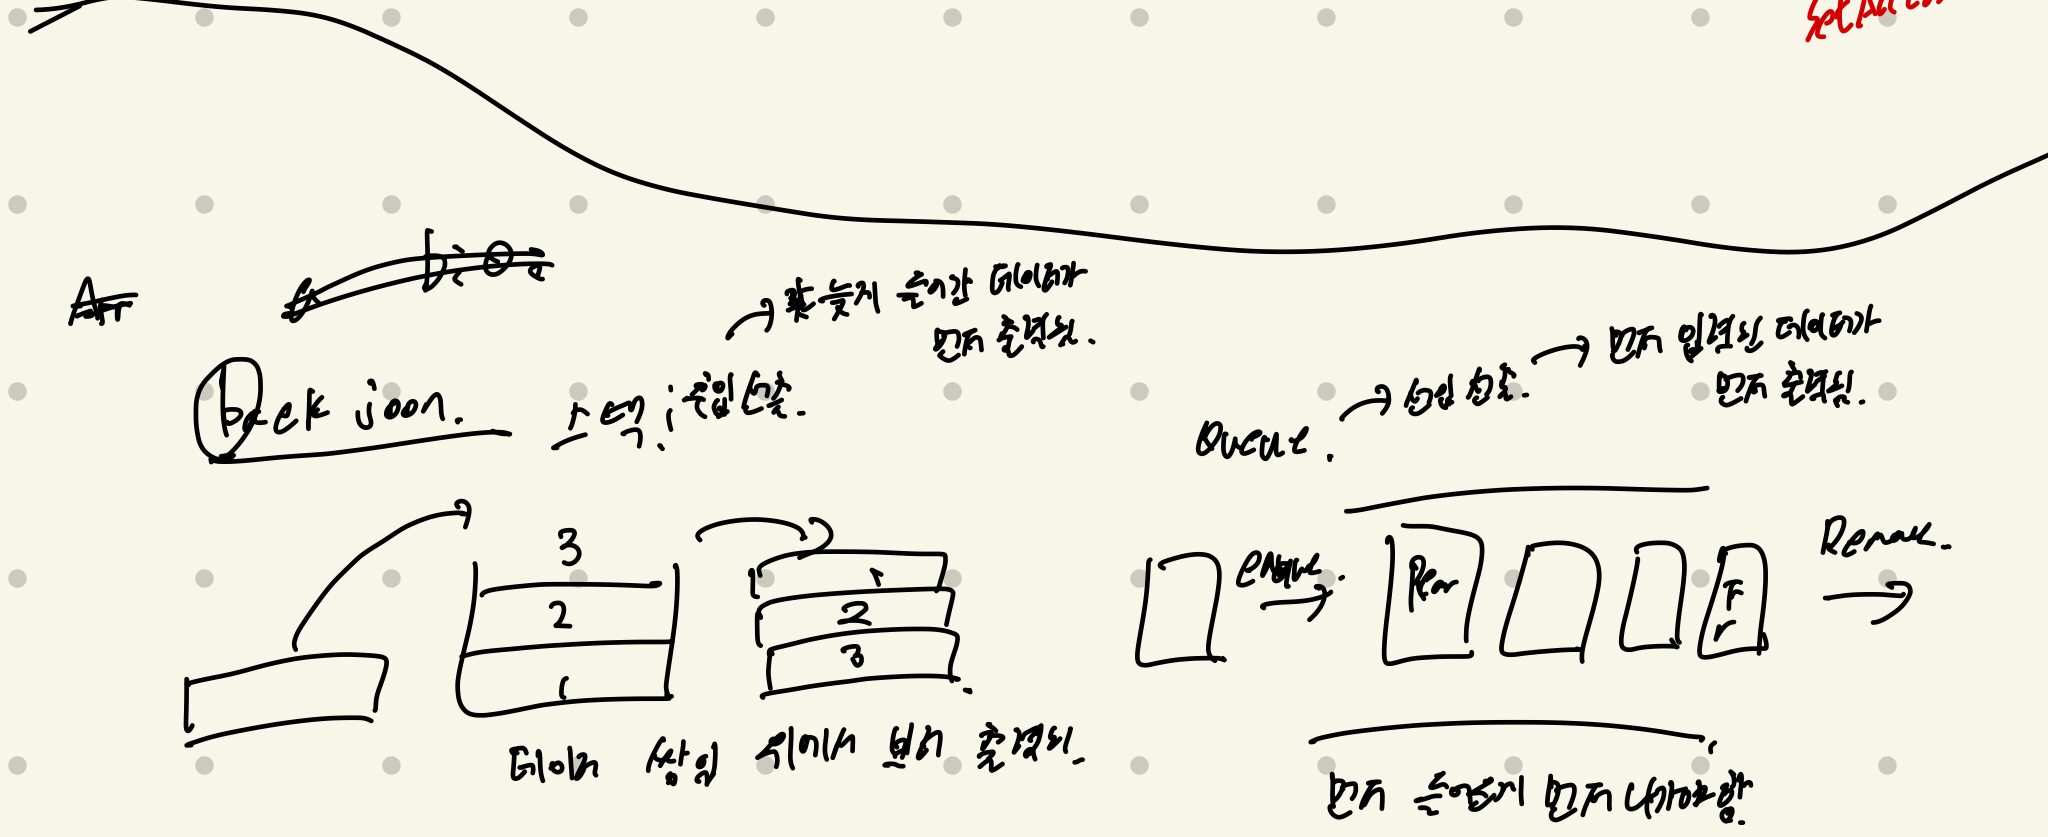 Back joon.
스택.; 후입선출.
→ 늦게 들어간 데이터가
먼저 출력됨.
3
2
1
1
2
3
데이터 쌓임 위에서 부터 출력됨.
Queue. → 선입 선출. → 먼저 입력된 데이터가
먼저 출력됨.
Rear
Fr
먼저 들어온게 먼저 나가야함.